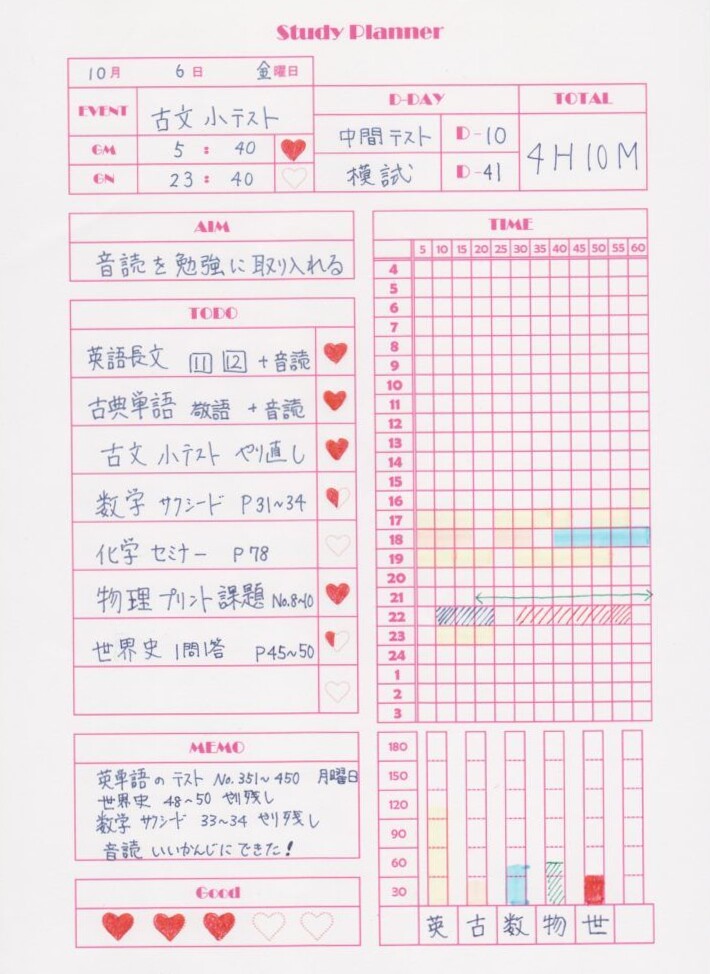 Study Planner
10月 6日 金曜日
EVENT 古文 小テスト
GM 5 : 40
GN 23 : 40
D-DAY
中間テスト D-10
模試 D-41
TOTAL
4H10M
AIM
音読を勉強に取り入れる
TODO
英語長文 11 12 +音読
古典単語 敬語 +音読
古文 小テスト やり直し
数学 サクシード P31~34
化学 セミナー P78
物理 プリント課題 No.8~10
世界史 1問1答 P45~50
MEMO
英単語の テスト No.351~450 月曜日
世界史 48~50 やり残し
数学 サクシード 33~34 やり残し
音読 いいかんじにできた!
Good
TIME
5 10 15 20 25 30 35 40 45 50 55 60
4
5
6
7
8
9
10
11
12
13
14
15
16
17
18
19
20
21
22
23
24
1
2
3
180
150
120
90
60
30
英 古 数 物 世